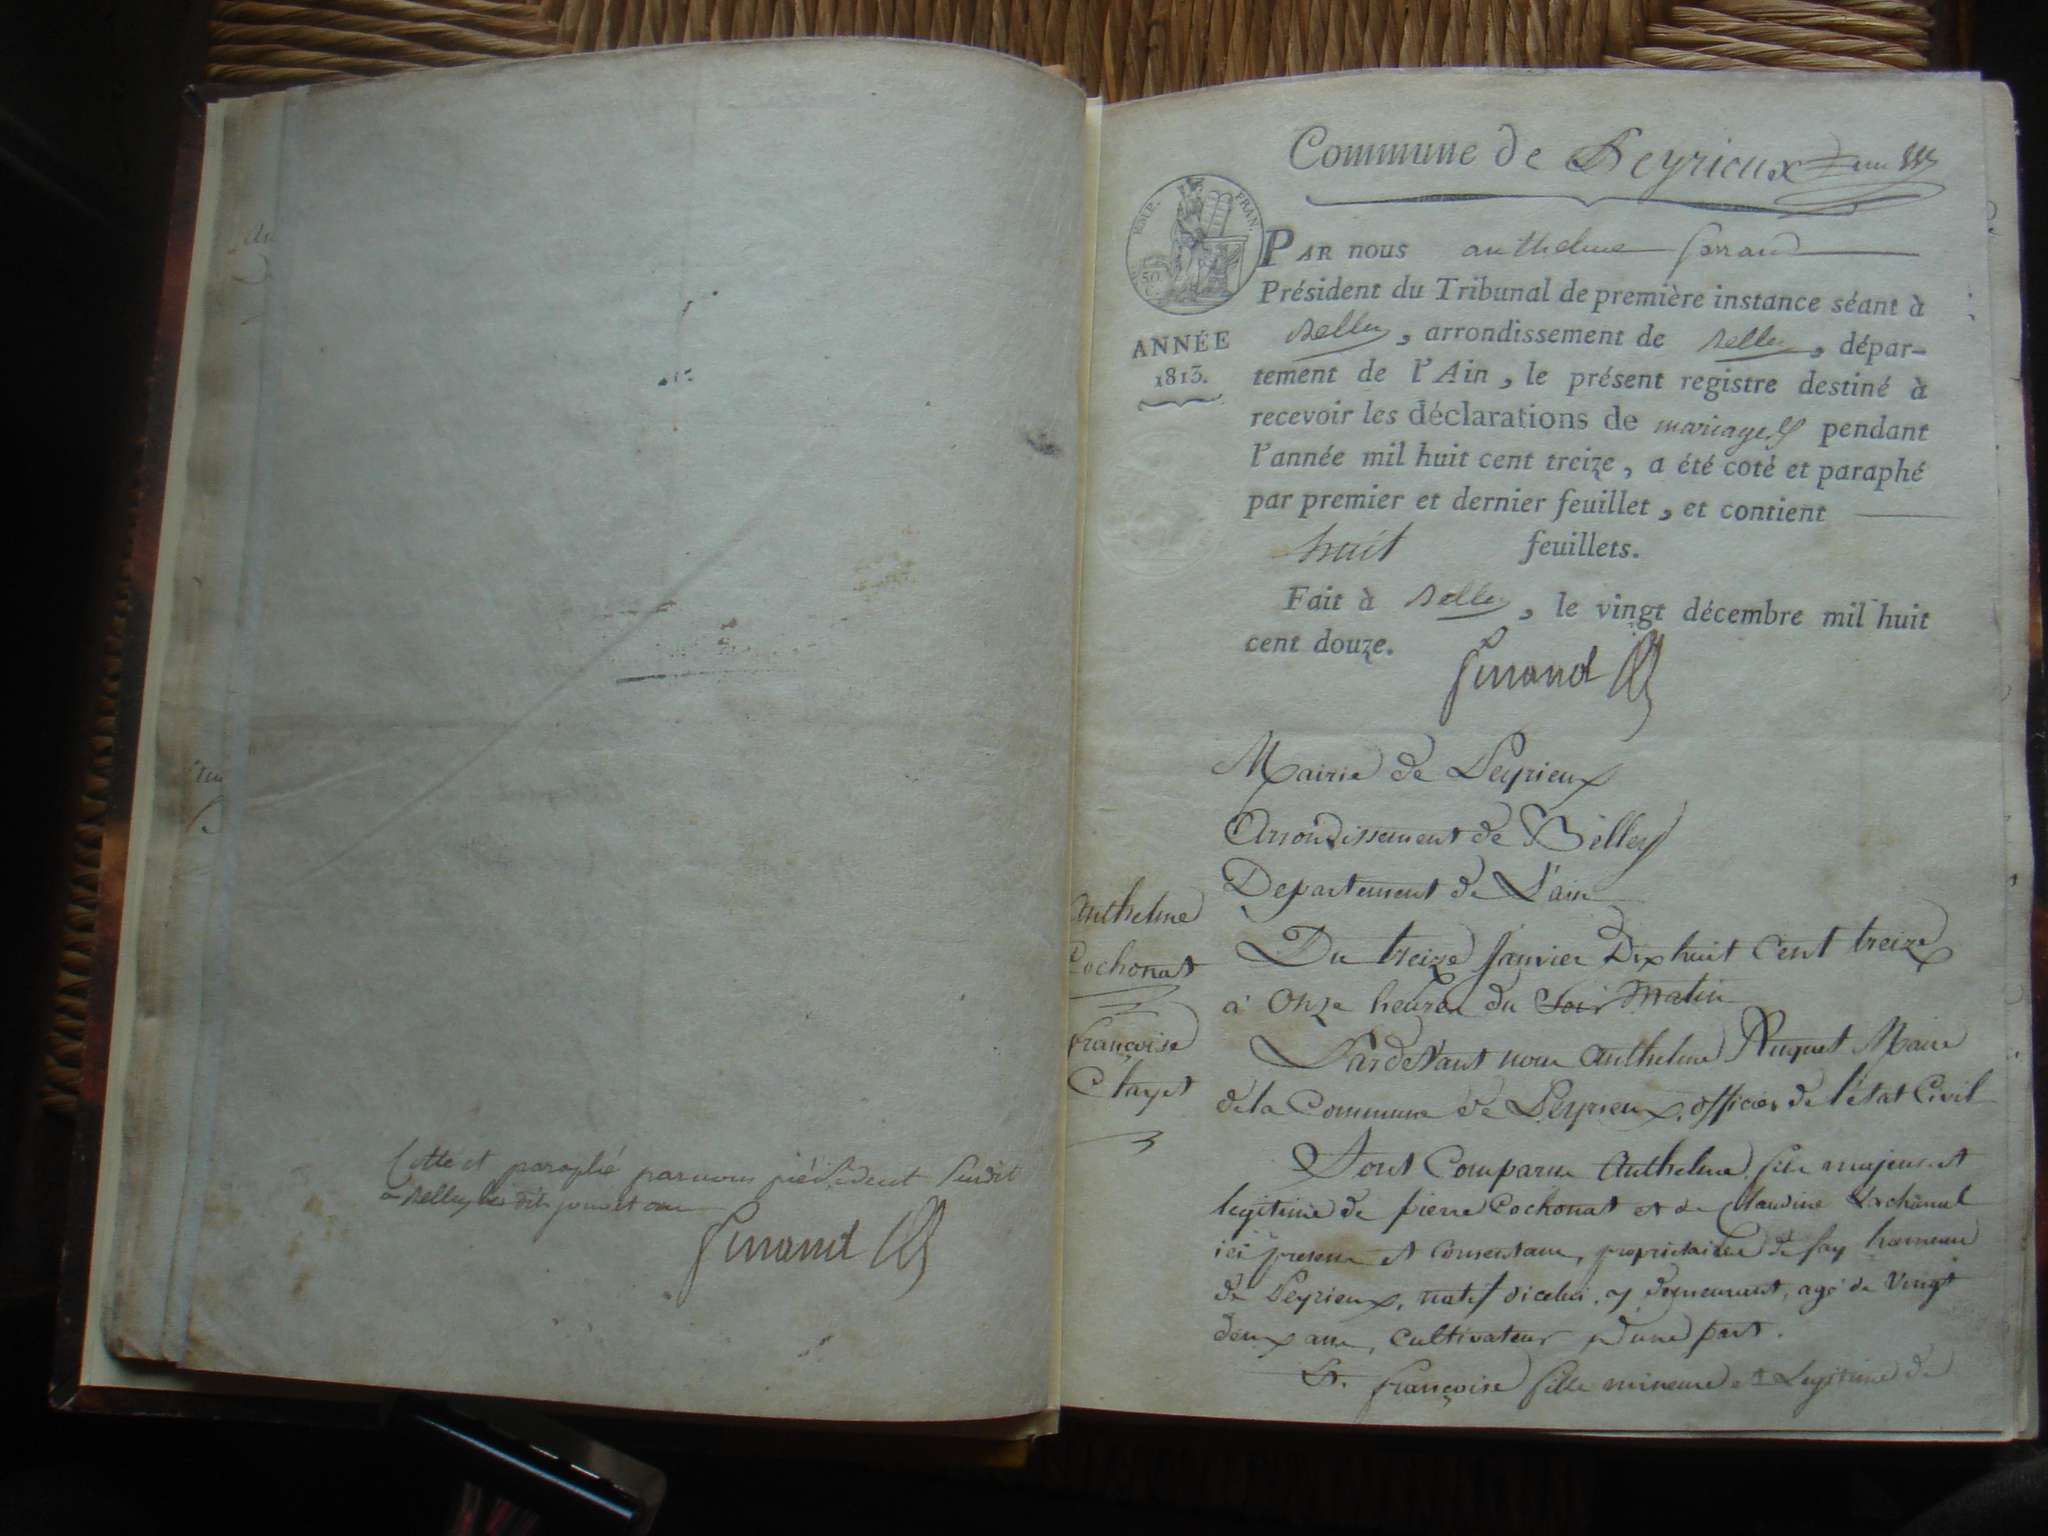 Cotte et paraphé par nous président susdit
a Belley les dits jour et an
Commune de Peyrieux
EMP. FRAN.
50 C.
ANNÉE
1813.
PAR nous anthelme
Président du Tribunal de première instance séant à
Belley, arrondissement de Belley, dépar-
tement de l'Ain, le présent registre destiné à
recevoir les déclarations de mariages pendant
l'année mil huit cent treize, a été coté et paraphé
par premier et dernier feuillet, et contient
huit feuillets.
Fait à Belley, le vingt décembre mil huit
cent douze.
Mairie de Peyrieux
Arrondissement de Belley
Departement de L'ain
Anthelme
Cochonat
françoise
Clayet
Du treize Janvier Dix huit Cent treize
à Onze heures du Soir Matin
Pardevant nous Anthelme Ruquet Maire
de la Commune de Peyrieux, officier de l'état Civil
Sont Comparus Anthelme fils majeur et
legitime de pierre Cochonat et de Claudine
ici presens et Consentans, proprietaires de fay hameau
de Peyrieux, natif dicelui, y demeurant, agé de Vingt
deux ans, Cultivateur d'une part.
Et. françoise fille mineure et Legitime de